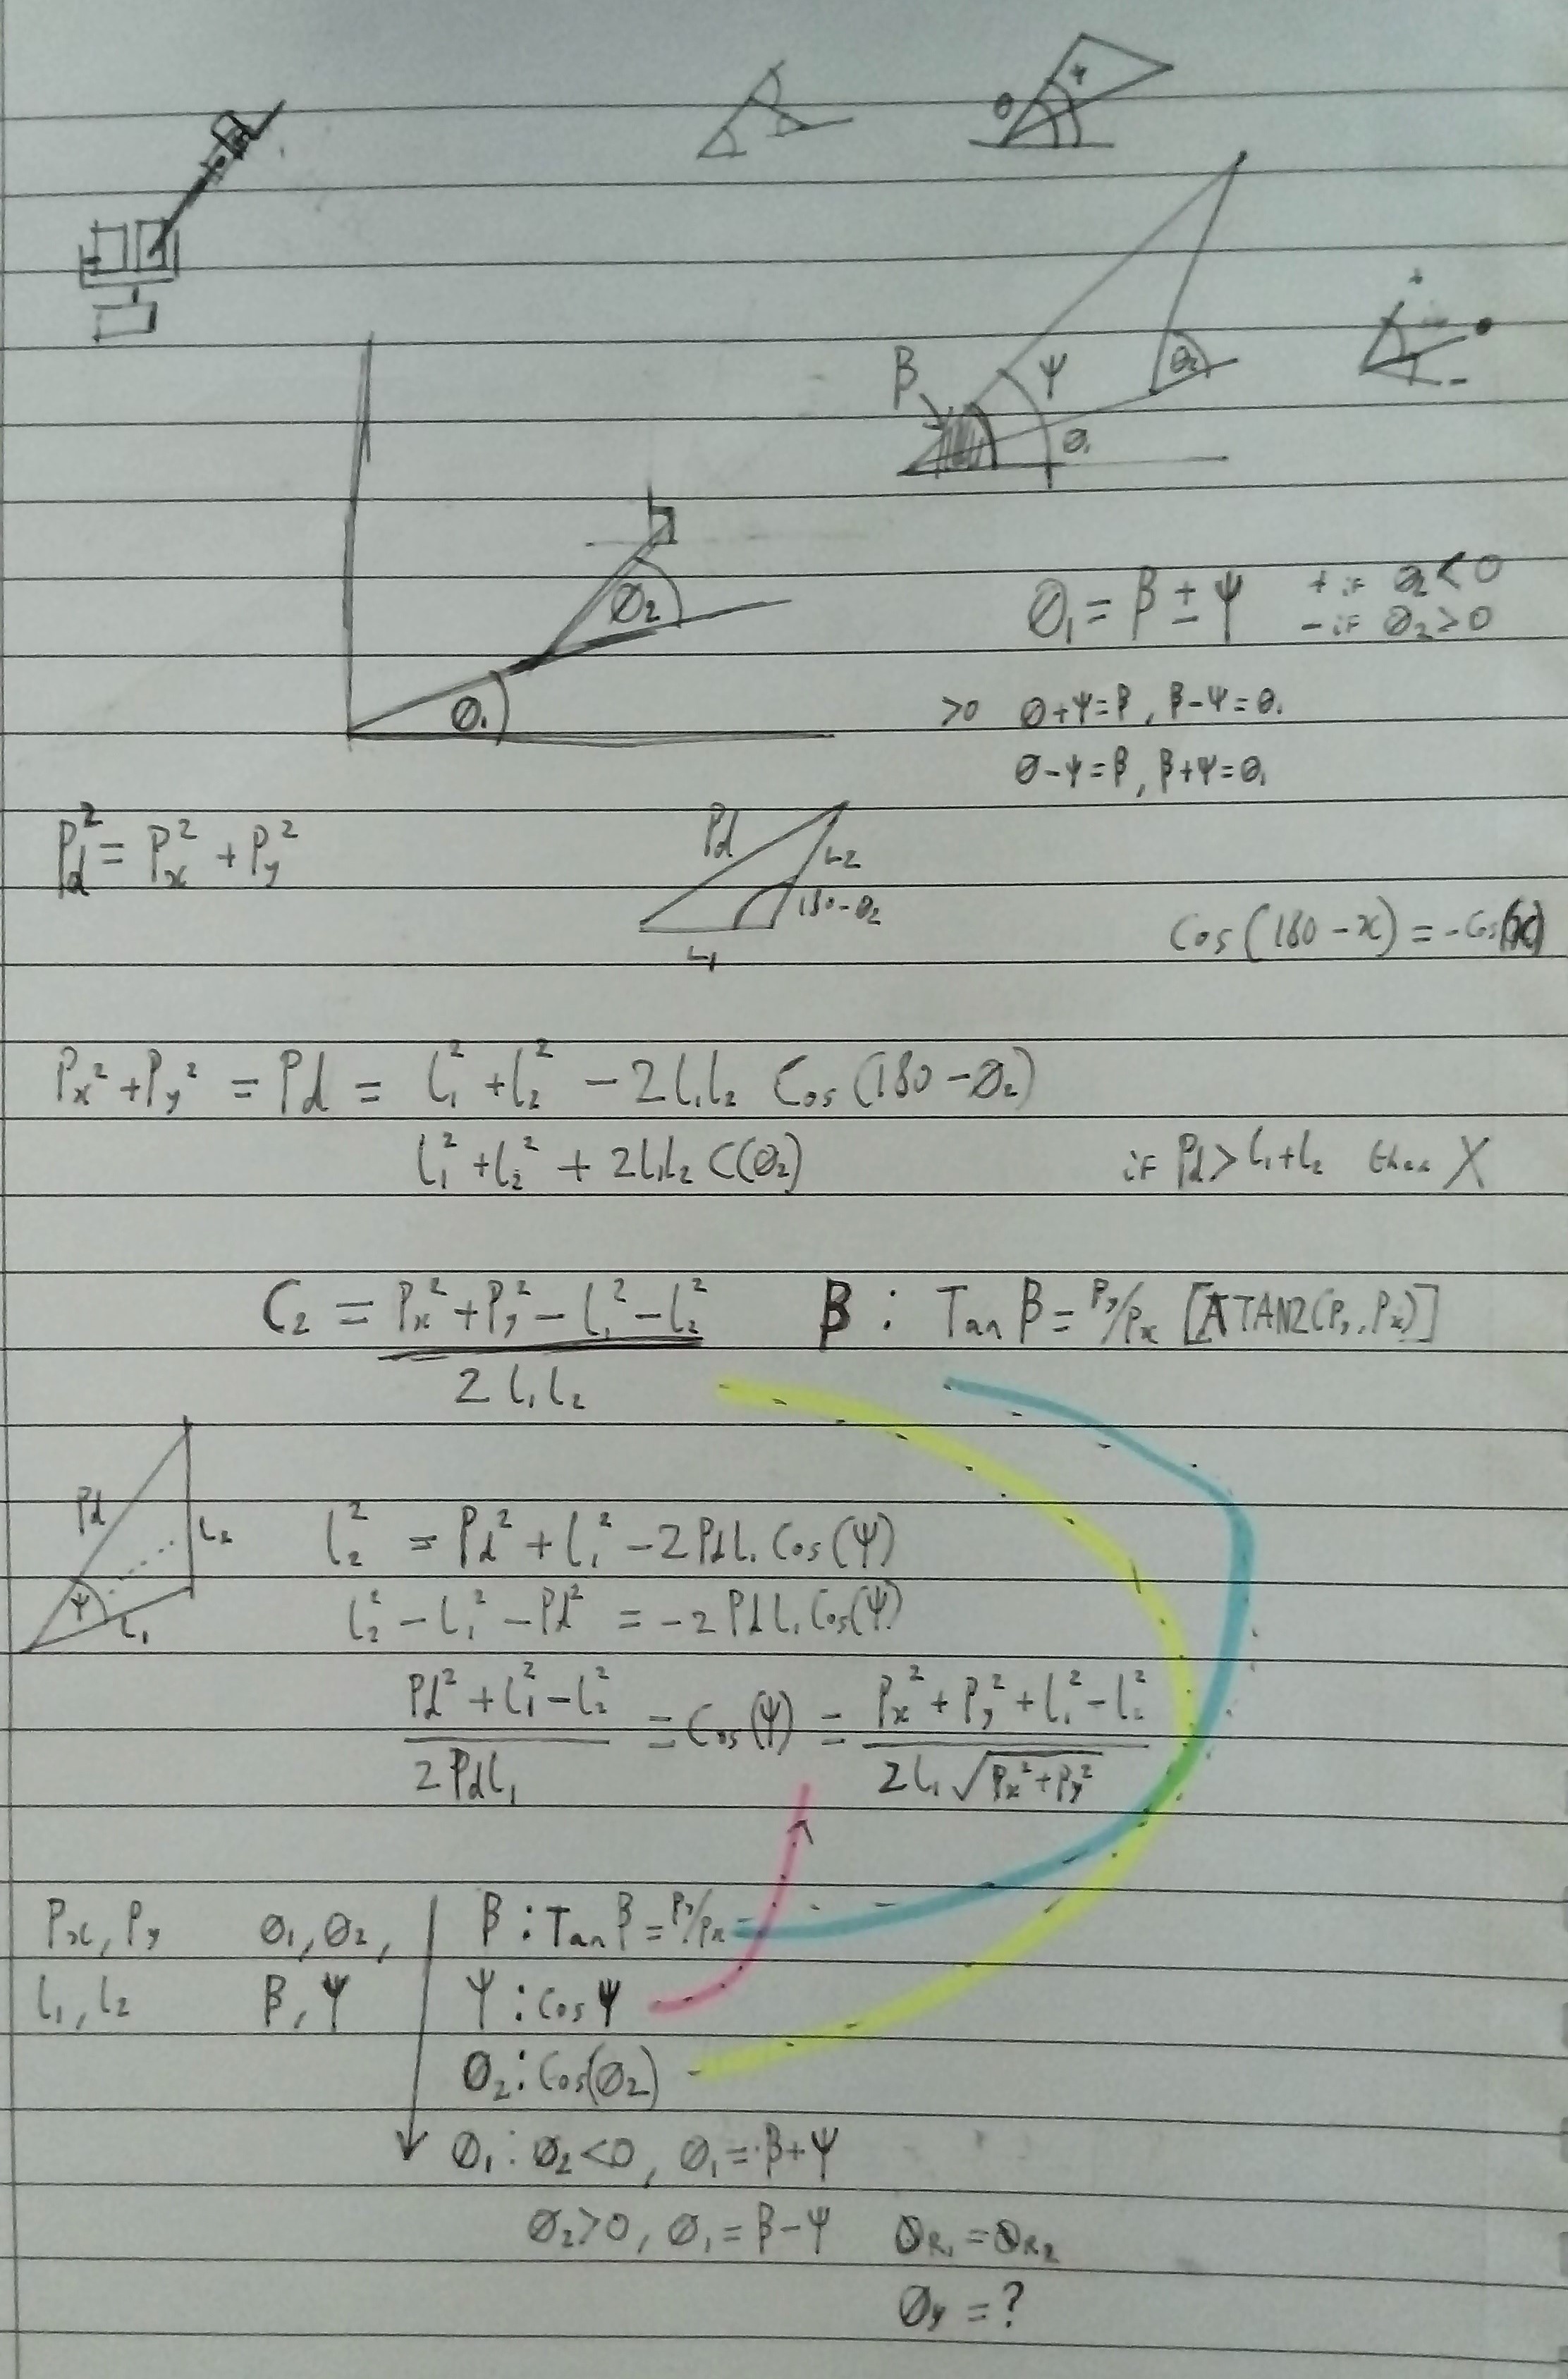 β ψ θ₂ θ₁
θ₁ = β ± ψ + if θ₂ < 0
- if θ₂ > 0
θ₂
θ₁
>0 θ+ψ=β, β-ψ=θ₁
θ-ψ=β, β+ψ=θ₁
Pd² = Px² + Py²
Pd L2 180-θ₂ L1
Cos(180-x) = -Cos(x)
Px² + Py² = Pd = l₁² + l₂² - 2l₁l₂ Cos(180-θ₂)
l₁² + l₂² + 2l₁l₂ C(θ₂) if Pd > l₁+l₂ then X
C₂ = (Px² + Py² - l₁² - l₂²) / 2l₁l₂ β : Tan β = Py/Px [ATAN2(Py, Px)]
Pd L2 ψ L1
l₂² = Pd² + l₁² - 2Pdl₁ Cos(ψ)
l₂² - l₁² - Pd² = -2Pdl₁ Cos(ψ)
(Pd² + l₁² - l₂²) / 2Pdl₁ = Cos(ψ) = (Px² + Py² + l₁² - l₂²) / 2l₁√(Px² + Py²)
Px, Py θ₁, θ₂, β : Tan β = Py/Px
l₁, l₂ β, ψ ψ : Cos ψ
θ₂ : Cos(θ₂)
θ₁ : θ₂ < 0, θ₁ = β + ψ
θ₂ > 0, θ₁ = β - ψ θR₁ = θR₂
θy = ?